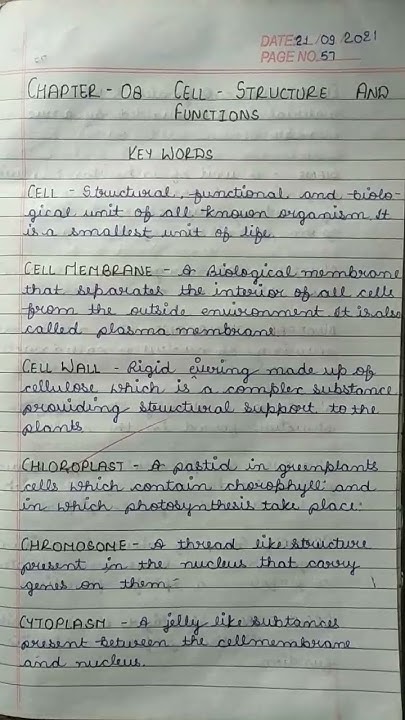 DATE: 21/09/2021
PAGE NO. 57
CHAPTER - 08 CELL - STRUCTURE AND
FUNCTIONS
KEY WORDS
CELL - Structural, functional and biolo-
gical unit of all known organism. It
is a smallest unit of life.
CELL MEMBRANE - A Biological membrane
that separates the interior of all cells
from the outside environment It is also
called plasma membrane.
CELL WALL - Rigid covering made up of
cellulose which is a complex substance
providing structural support to the
plants
CHLOROPLAST - A pastid in greenplants
cells which contain chorophyll and
in which photosynthesis take place.
CHROMOSOME - A thread like structure
present in the nucleus that carry
genes on them -
CYTOPLASM - A jelly like subtances
present between the cellmembrane
and nucleus.